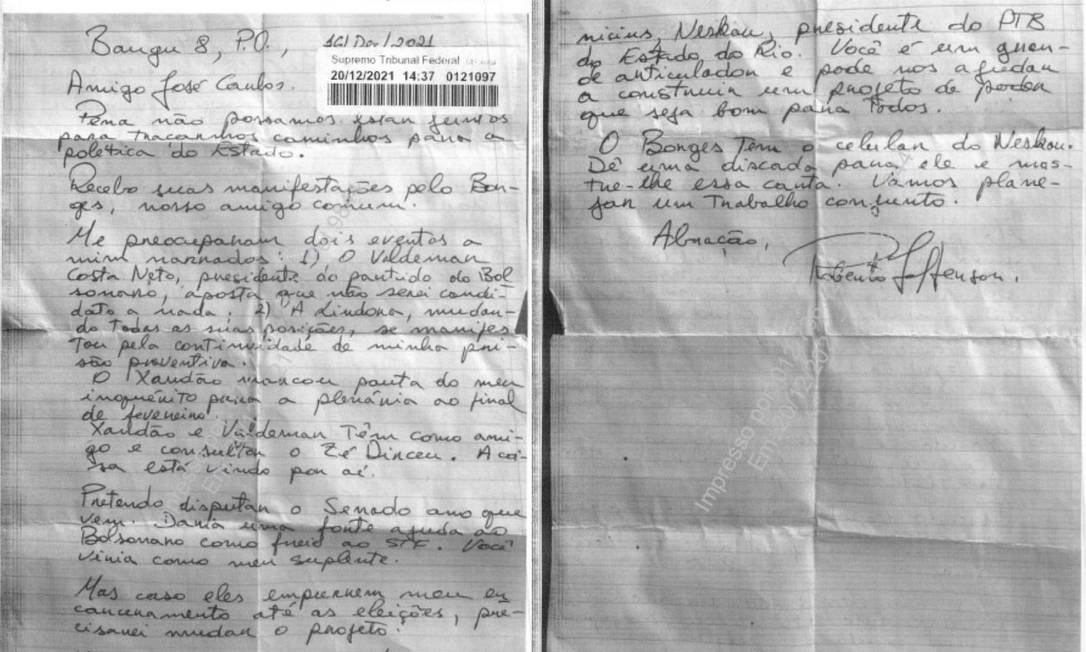 Bangu 8, P.O.,
16/Dez/2021
Supremo Tribunal Federal
20/12/2021 14:37 0121097
Amigo José Carlos.
Pena não possamos estar juntos
para traçarmos caminhos para a
política do Estado.
Recebo suas manifestações pelo Bor-
ges, nosso amigo comum.
Me preocuparam dois eventos a
mim narrados: 1) O Valdemar
Costa Neto, presidente do partido do Bol
sonaro, aposta que não serei candi-
dato a nada; 2) A Lindora, mudan-
do todas as suas posições, se manifes
tou pela continuidade de minha pri-
são preventiva.
O Xandão marcou pauta do meu
inquérito para a plenária ao final
de fevereiro.
Xandão e Valdemar têm como ami-
go e consultor o Zé Dirceu. A coi-
sa está vindo por aí.
Pretendo disputar o Senado ano que
vem. Daria uma forte ajuda ao
Bolsonaro como freio ao STF. Você
viria como meu suplente.
Mas caso eles empurrem meu en
carceramento até as eleições, pre-
cisarei mudar o projeto.
nicius, Neskau, presidente do PTB
do Estado do Rio. Você é um gran-
de articulador e pode nos ajudar
a construir um projeto de poder
que seja bom para todos.
O Borges tem o celular do Neskau.
Dê uma discada para ele e mos-
tre-lhe essa carta. Vamos plane-
jar um trabalho conjunto.
Abração,
Roberto Jefferson.
Impresso por: 012
Em: 20/12/202